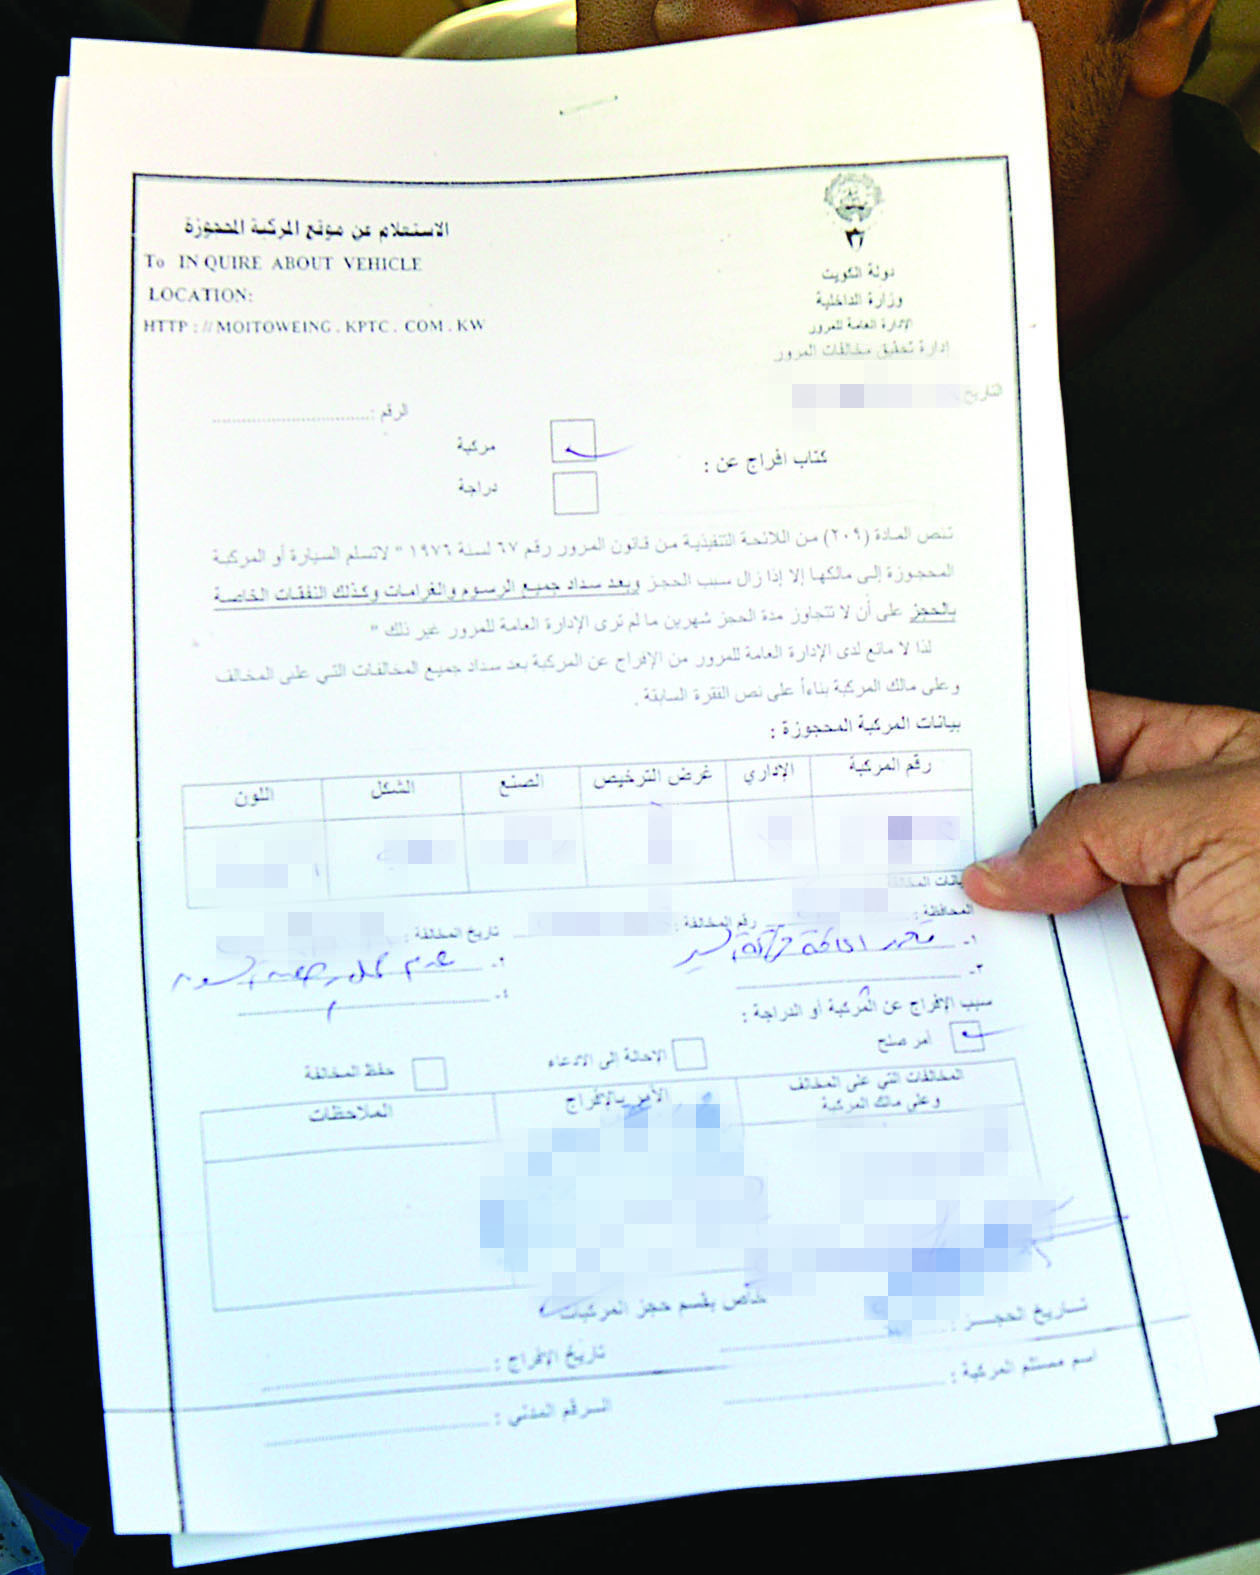 الاستعلام عن موقع المركبة المحجوزة
To IN QUIRE ABOUT VEHICLE
LOCATION:
HTTP : // MOITOWEING . KPTC . COM . KW
دولة الكويت
وزارة الداخلية
الإدارة العامة للمرور
إدارة تحقيق مخالفات المرور
التاريخ
الرقم :
كتاب افراج عن :
مركبة
دراجة
تنص المادة (٢٠٩) من اللائحة التنفيذية من قانون المرور رقم ٦٧ لسنة ١٩٧٦ " لاتسلم السيارة أو المركبة
المحجوزة إلى مالكها إلا إذا زال سبب الحجز وبعد سداد جميع الرسوم والغرامات وكذلك النفقات الخاصة
بالحجز على أن لا تتجاوز مدة الحجز شهرين ما لم ترى الإدارة العامة للمرور غير ذلك "
لذا لا مانع لدى الإدارة العامة للمرور من الإفراج عن المركبة بعد سداد جميع المخالفات التي على المخالف
وعلى مالك المركبة بناءاً على نص الفقرة السابقة .
بيانات المركبة المحجوزة :
رقم المركبة الإداري غرض الترخيص الصنع الشكل اللون
المحافظة : رقم المخالفة : تاريخ المخالفة :
١-
٢-
٣-
٤-
سبب الإفراج عن المركبة أو الدراجة :
أمر صلح
الإحالة إلى الادعاء
حفظ المخالفة
المخالفات التي على المخالف
وعلى مالك المركبة
الأمر بالإفراج
الملاحظات
خاص بقسم حجز المركبات
تاريخ الحجز :
تاريخ الإفراج :
اسم مستلم المركبة :
الرقم المدني :